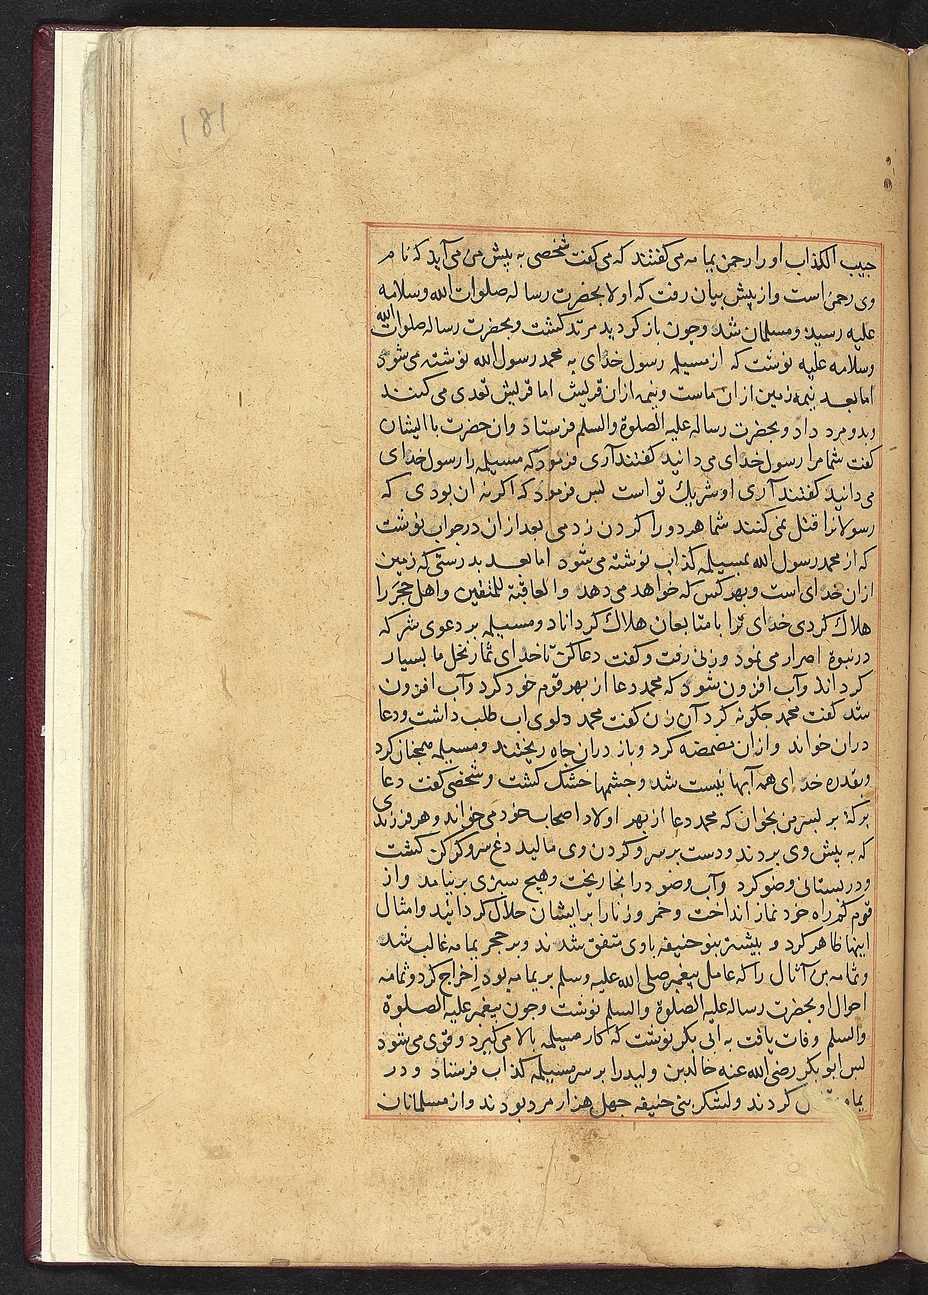 181
حبیب الکذاب او را رحمن یمامه می کفتند که می کفت شخصی به پیش من می آید که نام
وی رحمن است و از پیش بیان رفت که اولا بحضرت رساله صلوات الله وسلامه
علیه رسید و مسلمان شد و چون باز کردید مرتد کشت و بحضرت رساله صلوات الله
وسلامه علیه نوشت که از مسیلمه رسول خدای به محمد رسول الله نوشته می شود
اما بعد نیمه زمین ازان ماست و نیمه ازان قریش اما قریش تعدی می کنند
و بدو مرد داد و بحضرت رساله علیه الصلوة والسلم فرستاد وان حضرت با ایشان
کفت شما مرا رسول خدای می دانید کفتند آری فرمود که مسیلمه را رسول خدای
می دانید کفتند آری او شریک تو است پس فرمود که اکر نه آن بودی که
رسولانرا قتل نمی کنند شما هر دو را کردن زدمی بعد ازان در جواب نوشت
که از محمد رسول الله بمسیلمه کذاب نوشته می شود اما بعد بدرستی که زمین
ازان خدای است و بهر کس که خواهد می دهد والعاقبة للمتقین و اهل حجر را
هلاک کردی خدای ترا با متابعان هلاک کرداناد و مسیلمه بر دعوی شرکه
در نبوة اصرار می نمود و زنی رفت و کفت دعا کن تا خدای ثمار نخل ما بسیار
کرداند و آب افزون شود که محمد دعا از بهر قوم خود کرد و آب افزون
شد کفت محمد چکونه کرد آن زن کفت محمد دلوی اب طلب داشت و دعا
دران خواند و ازان مضمضه کرد و باز دران چاه ریختند و مسیلمه همچنان کرد
و بقدره خدای همه آبها نیست شد و چشمها خشک کشت و شخصی کفت دعای
برکة بر پسر من بخوان که محمد دعا از بهر اولاد اصحاب خود می خواند و هر فرزندی
که به پیش وی بردند و دست بر سر و کردن وی مالید دغ سر و کر کن کشت
و در بستانی وضو کرد و آب وضو در انجا ریخت و هیچ سبزی بر نیامد و از
قوم کم راه خود نماز انداخت و خمر و زنا را بر ایشان حلال کردانید و امثال
اینها ظاهر کرد و بیشتر بنو حنیفه با وی متفق شدند و بر حجر یمامه غالب شد
و ثمامه بن آثال را که عامل پیغمبر صلی الله علیه وسلم بر یمامه بود اخراج کرد و ثمامه
احوال او بحضرت رساله علیه الصلوة والسلم نوشت و چون پیغمبر علیه الصلوة
والسلم وفات یافت به ابی بکر نوشت که کار مسیلمه بالا می کیرد و قوی می شود
پس ابو بکر رضی الله عنه خالد بن ولید را بر سر مسیلمه کذاب فرستاد و در
کردند و لشکر بنی حنیفه چهل هزار مرد بودند و از مسلمانان